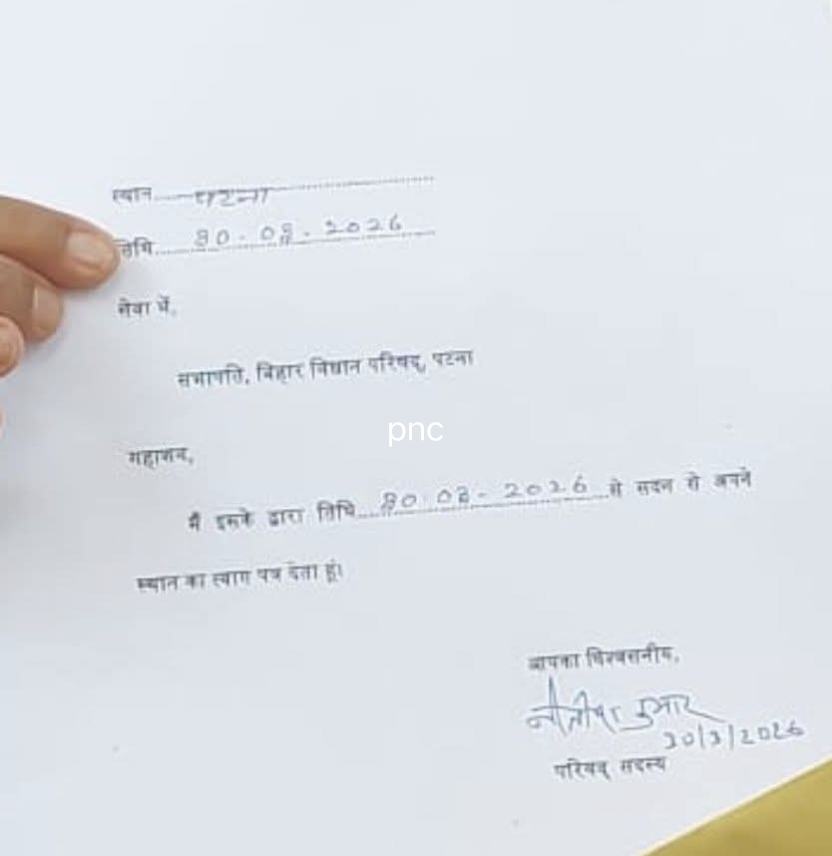 स्थान पटना
तिथि 30.03.2026
सेवा में,
सभापति, बिहार विधान परिषद्, पटना
pnc
महाशय,
मैं इसके द्वारा तिथि 30.03-2026 से सदन से अपने
स्थान का त्याग पत्र देता हूं।
आपका विश्वसनीय,
नीतीश कुमार
30/3/2026
परिषद् सदस्य